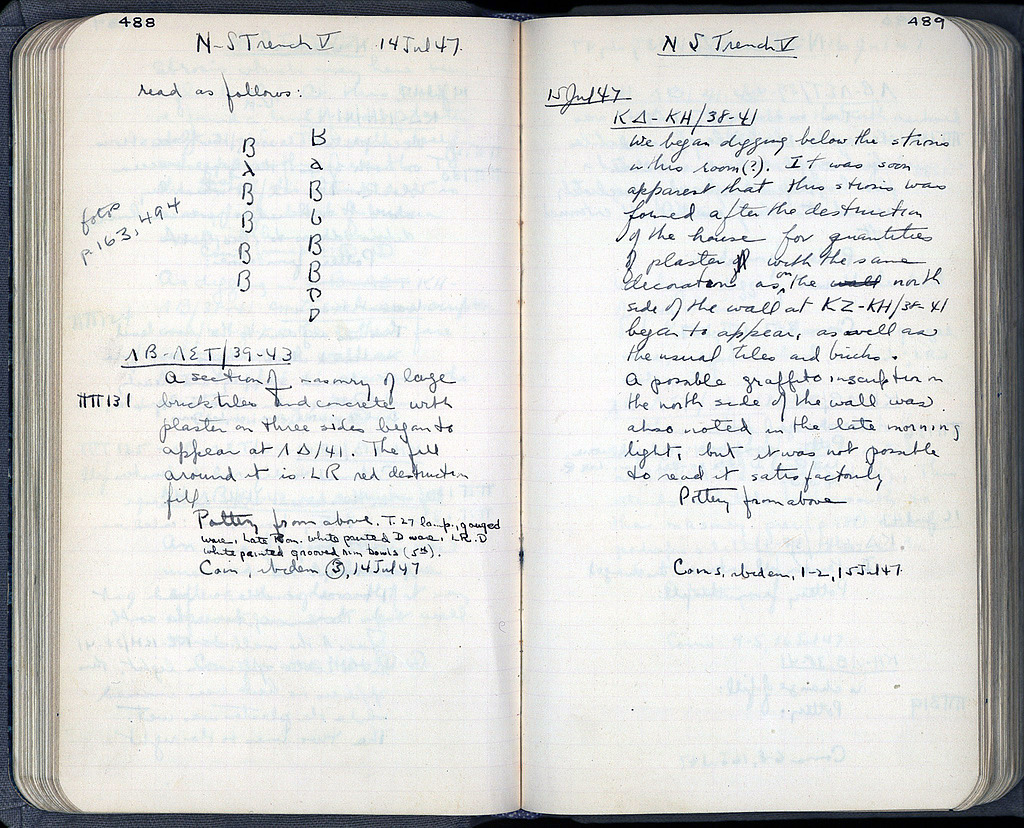 488
N-S Trench V 14 Jul 47.
read as follows:
B
λ
B
B
B
B
a
B
B
B
foto
p. 163, 494
ΛB-ΛΣT/39-43
A section of masonry of large
ΠΠ 131 brick tiles and concrete with
plaster on three sides began to
appear at ΛΔ/41. The fill
around it is LR red destruction
fill.
Pottery from above. T. 27 lamp., gouged
ware, Late Rom. white painted D ware, LR. D
white painted grooved rim bowls (5th).
Coin, ibidem ③, 14 Jul 47
489
N S Trench V
15 Jul 47
KΔ-KH/38-41
We began digging below the strosis
in this room (?). It was soon
apparent that this strosis was
formed after the destruction
of the house for quantities
of plaster with the same
decorations as on the wall north
side of the wall at KZ-KH/38-41
began to appear, as well as
the usual tiles and bricks.
A possible graffito inscription on
the north side of the wall was
also noted in the late morning
light, but it was not possible
to read it satisfactorily
Pottery from above
Coins, ibidem, 1-2, 15 Jul 47